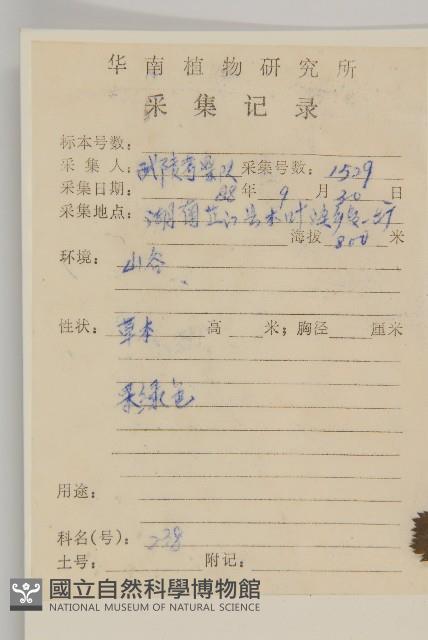 华南植物研究所
采集记录
标本号数：
采集人：武陵考察队 采集号数：1529
采集日期： 88年 9月 20日
采集地点：湖南芷江县木叶溪
海拔 800 米
环境：山谷
性状：草本 高 米；胸径 厘米
果绿色
用途：
科名(号)：238
土号： 附记：
國立自然科學博物館
NATIONAL MUSEUM OF NATURAL SCIENCE